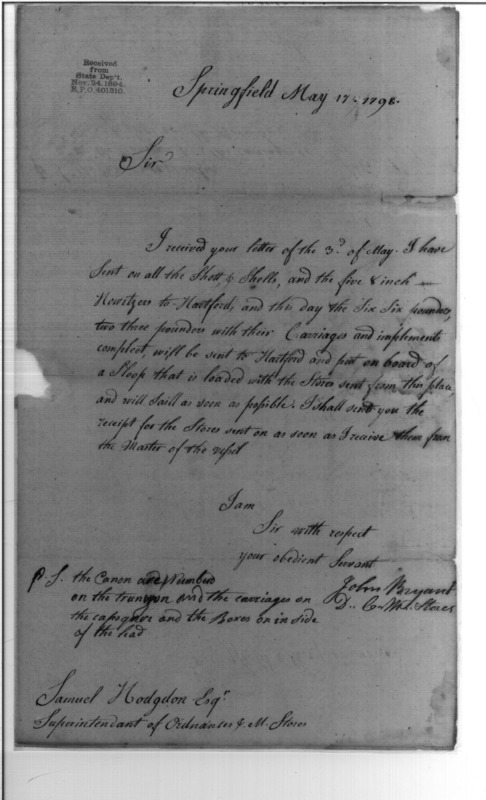 Received
from
State Dep't.
Nov. 24, 1894.
R.P.O. 401310.
Springfield May 17. 1798.
Sir
I received your letter of the 3.d of May. I have
Sent on all the Shott & Shells, and the five 8 inch
Howitzers to Hartford, and this day the Six Six pounders,
two three pounders with their Carriages and impliments
compleet, will be sent to Hartford and put on board of
a Sloop that is loaded with the Stores sent from this place,
and will Saill as soon as possible. I shall sent you the
receipt for the Stores sent on as soon as I receive them from
the Master of the vessel
I am
Sir with respect
your obedient Servant
John Bryant
D.. C. M. Stores
P.S. the Canon are Numbed
on the trunyon and the carriages on
the capsquor and the Boxes on in side
of the lead
Samuel Hodgdon Esqr.
Superintendant of Ordnances & M. Stores